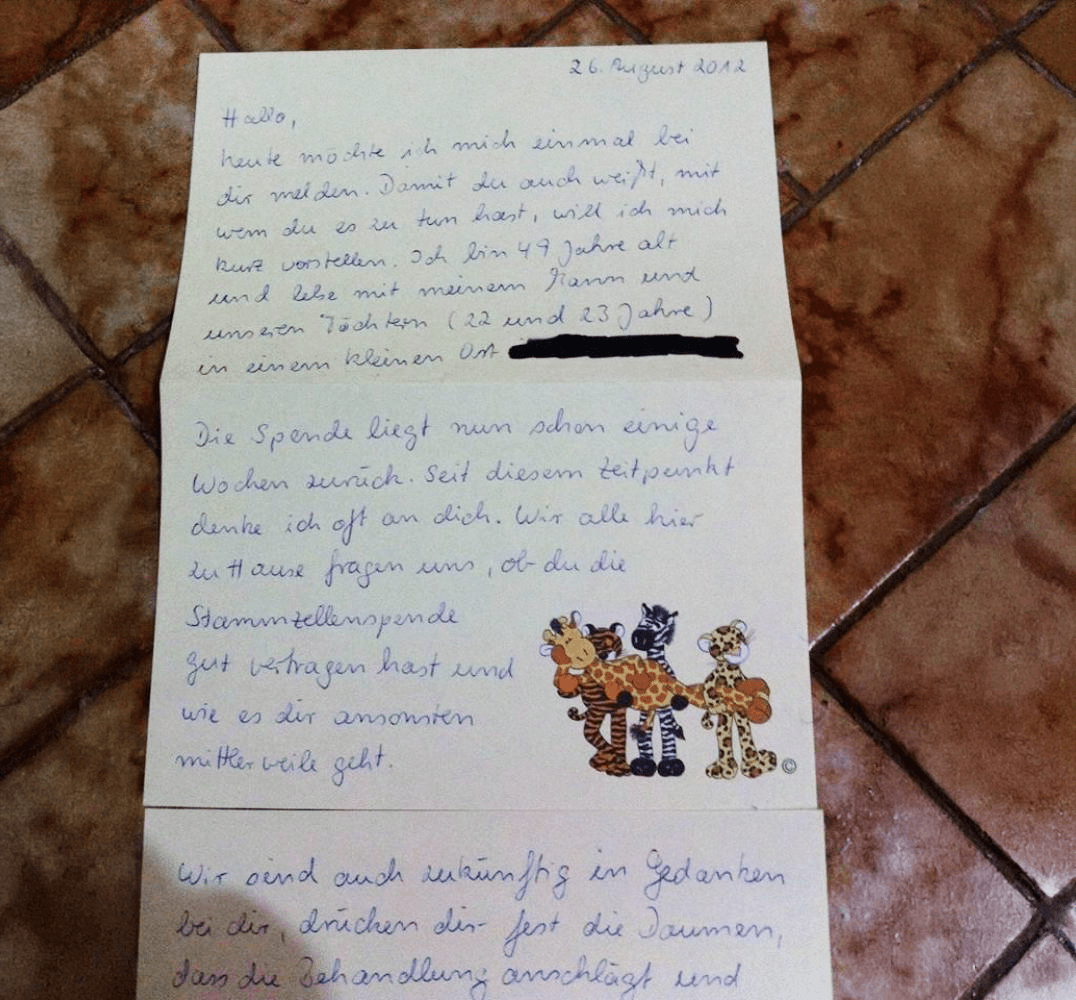 26. August 2012
Hallo,
heute möchte ich mich einmal bei
dir melden. Damit du auch weißt, mit
wem du es zu tun hast, will ich mich
kurz vorstellen. Ich bin 49 Jahre alt
und lebe mit meinem Mann und
unseren Töchtern (22 und 23 Jahre)
in einem kleinen Ort
Die Spende liegt nun schon einige
Wochen zurück. Seit diesem Zeitpunkt
denke ich oft an dich. Wir alle hier
zu Hause fragen uns, ob du die
Stammzellenspende
gut vertragen hast und
wie es dir ansonsten
mittlerweile geht.
©
Wir sind auch zukünftig in Gedanken
bei dir, drücken dir fest die Daumen,
dass die Behandlung anschlägt und